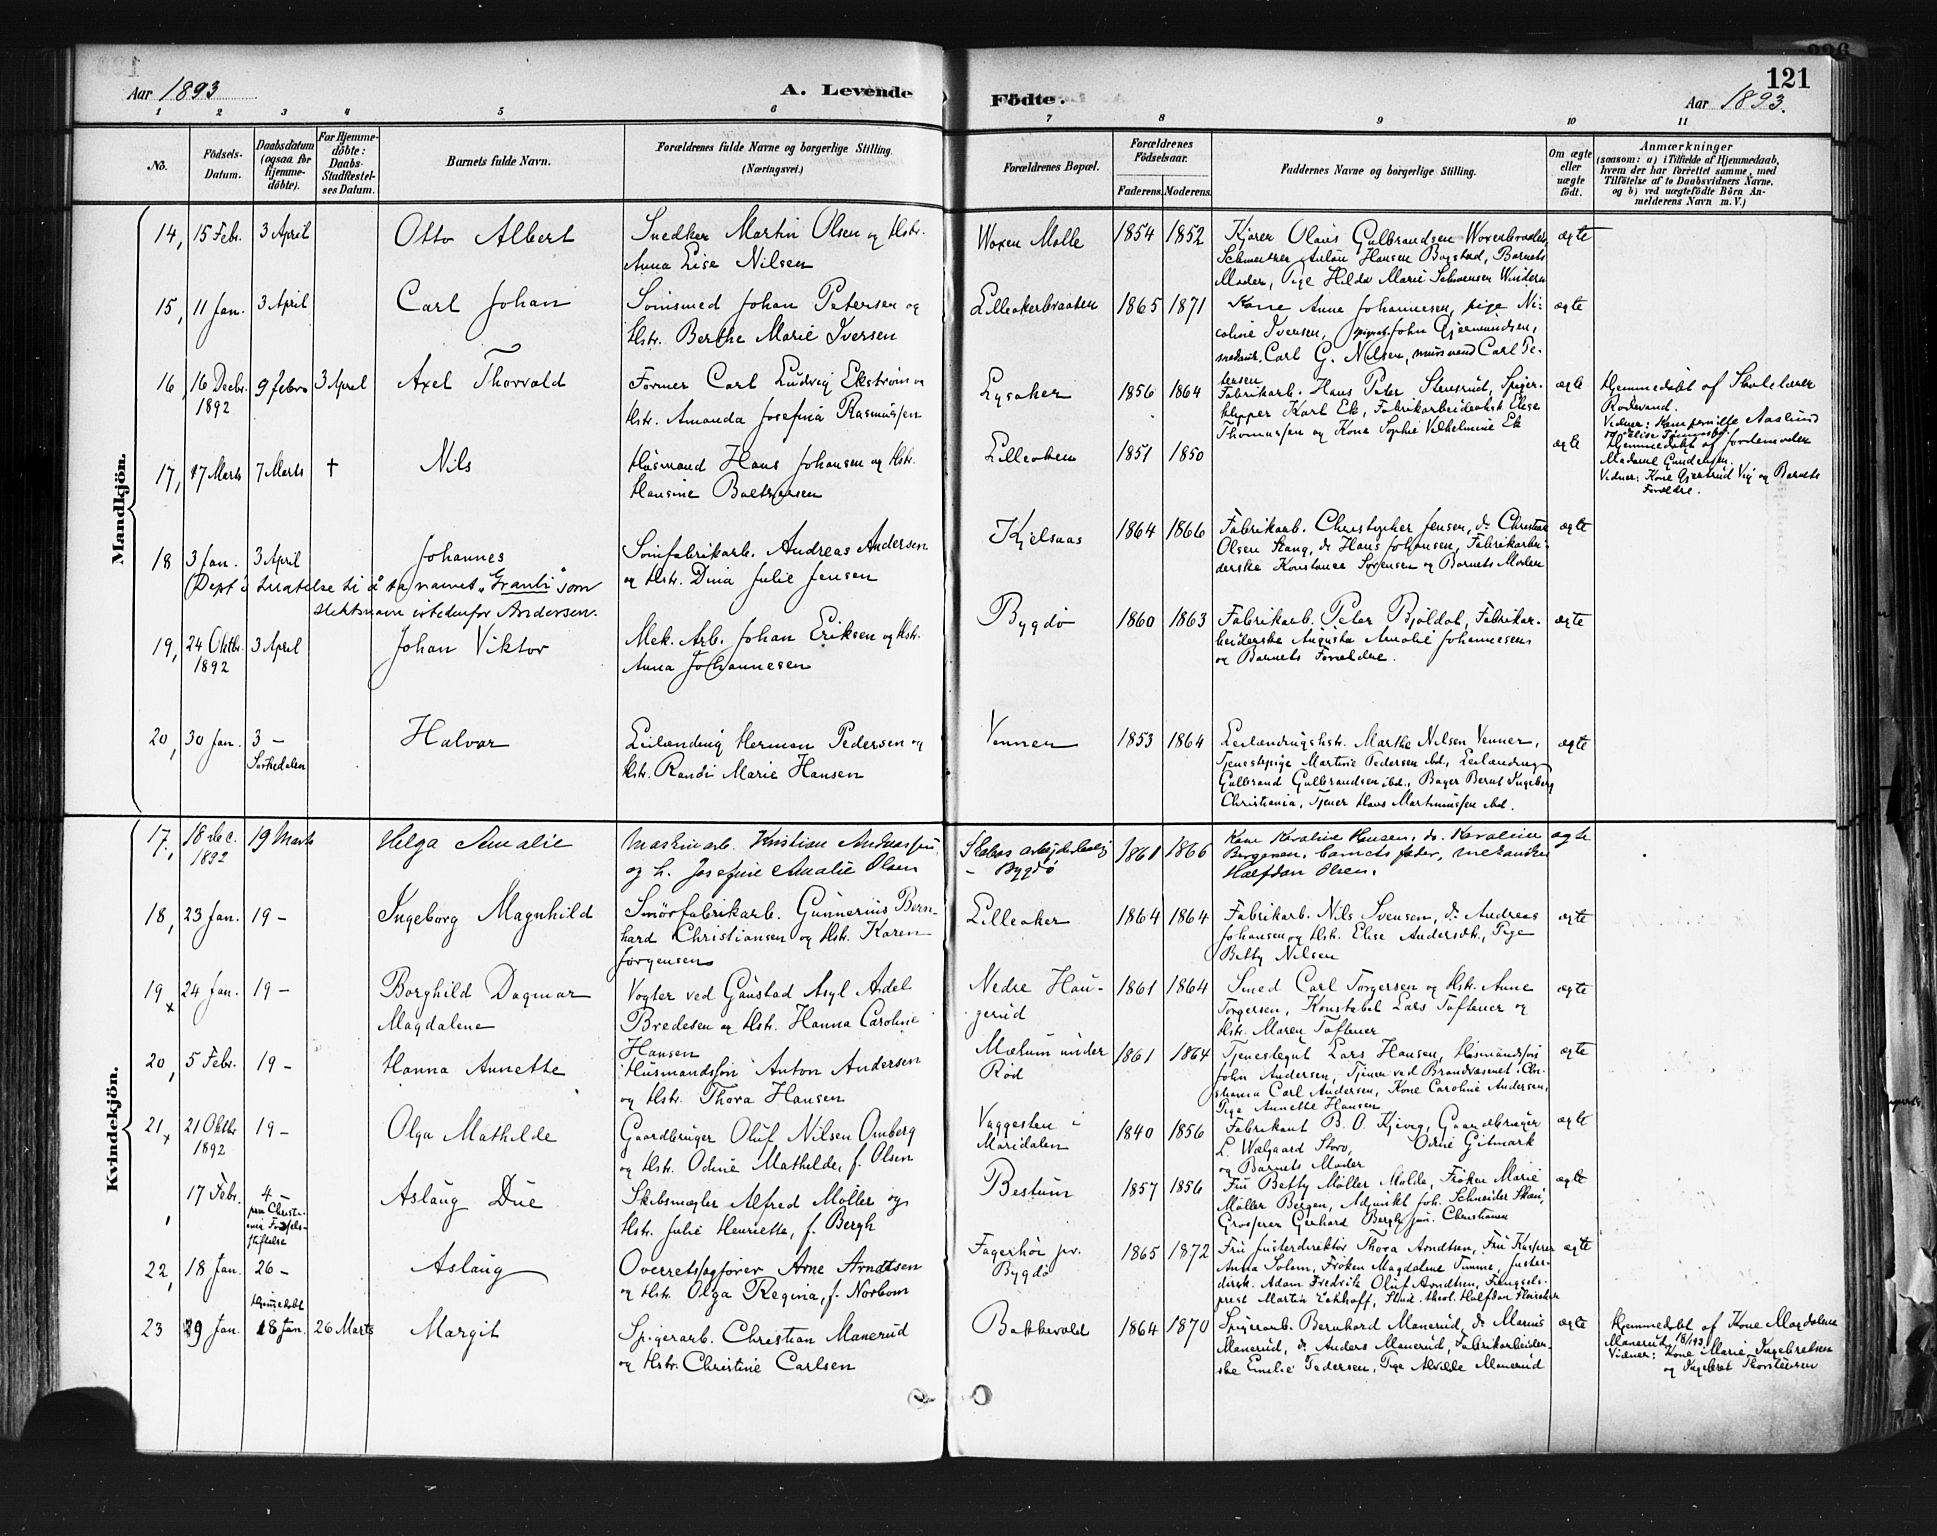 121
Aar 1893
A. Levende
Födte.
Aar 1893.
1 2 3 4 5 6 7 8 9 10 11
No.
Födsels-
Datum.
Daabsdatum
(ogsaa for
hjemme-
döbte).
For Hjemme-
döbte:
Daabs-
Stadfæstel-
ses Datum.
Barnets fulde Navn.
Forældrenes fulde Navne og borgerlige Stilling.
(Næringsvei.)
Forældrenes Bopæl.
Forældrenes
Födselsaar.
Faderens. Moderens.
Faddernes Navne og borgerlige Stilling.
Om ægte
eller
uægte
födt.
Anmærkninger
(saasom: a) i Tilfælde af Hjemmedaab,
hvem der har forrettet samme, med
Tilföielse af to Daabsvidners Navne,
og b) ved uægtefödte Börn An-
melderens Navn m. V.)
Mandkjön.
14, 15 Febr. 3 April Otto Albert Snedker Martin Olsen og Hstr.
Anna Lise Nilsen
Woxen Mølle 1854 1852 Kjører Olaus Gulbrandsen
Hansen Bogstad, Barnets
Moder, Pige Hilda Marie Windern
ægte
15, 11 Jan. 3 April Carl Johan Sømsmed Johan Petersen og
Hstr. Berthe Marie Iversen
Lilleakerbraaten 1865 1871 Kone Anne Johannesen, pige Ni-
coline Iversen, John Gjermundsen,
Carl G. Nilsen, murssvend Carl Pe-
tersen
ægte
16, 16 Decbr. 1892 9 Febr 3 April Axel Thorvald Former Carl Ludvig Ekstrøm og
Hstr. Amanda Josefina Rasmussen
Lysaker 1856 1864 Fabrikarb. Hans Peter Stensrud, Spiger-
klipper Karl Ek, Elise
Thomassen og Kone Sophie Vilhelmine Ek
ægte
Hjemmedøbt af Skolelærer
Rodevand.
Vidner: Kone Pernille Aaslund
17, 17 Marts 7 Marts † Nils Husmand Hans Johansen og Hstr.
Hansine Baltzersen
Lilleaken 1851 1850 ægte
Hjemmedøbt af Jordemoder
Madame Gundersen.
Vidner: Kone Gjertrud Vig og Barnets
Forældre.
18 3 Jan. 3 April Johannes Sømfabrikarb. Andreas Andersen
og Hstr. Dina Julie Jensen
Kjelsaas 1864 1866 Fabrikarb. Christopher Jensen, do Christian
Olsen Stang, do Hans Johansen, Fabrikarbei-
derske Konstance Sørensen og Barnets Moder
ægte
(Dept's tillatelse til å ta navnet "Granli" som
slektsnavn istedenfor Andersen.
19, 24 Oktbr. 1892 3 April Johan Viktor Mek. Arb. Johan Eriksen og Hstr.
Anna Johannesen
Bygdø 1860 1863 Fabrikarb. Peter Bjøldal, Fabrikar-
beiderske Augusta Amalie Johannesens
og Barnets Forældre.
ægte
20, 30 Jan. 3 –
Sørkedalen
Halvor Leilænding Herman Pedersen og
Hstr. Randi Marie Hansen
Venner 1853 1864 Leilændingshstr. Marthe Nilsen Venner,
Tjenestepige Martine Pedersen ibd., Leilænding
Gulbrand Gulbrandsen ibd., Bager Bernt Ingeberg
Christiania, Tjener Hans Martinussen ibd.
ægte
Kvindekjön.
17, 18 dec. 1892 19 Marts Helga Amalie Maskinarb. Kristian Andreassen
og h. Josefine Amalie Olsen
Bygdø
1861 1866 Kone Karoline Hansen, do. Karoline
Bergersen, barnets fader, mekaniker
Halfdan Olsen.
ægte
18, 23 Jan. 19 – Ingeborg Magnhild Smørfabrikarb. Gunnerius Bern-
hard Christiansen og Hstr. Karen
Jørgensen
Lilleaker 1864 1864 Fabrikarb. Nils Svensen, do Andreas
Johansen og Hstr. Elise Andersdtr., Pige
Betty Nilsen
ægte
19 x 24 Jan. 19 – Borghild Dagmar
Magdalene
Vogter ved Gaustad Asyl Adel
Bredesen og Hstr. Hanna Caroline
Hansen
Nedre Hau-
gerud
1861 1864 Smed Carl Torgersen og Hstr. Anne
Torgersen, Konstabel Lars Toftener og
Hstr. Maren Toftener
ægte
20, 5 Febr. 19 – Hanna Annette Husmandssøn Anton Andersen
og Hstr. Thora Hansen
Mælum under
Rød
1861 1864 Tjenestegut Lars Hansen, Husmandssøn
John Andersen, Tjener ved Brandvæsenet i Chri-
stiania Carl Andersen, Kone Caroline Andersen,
Pige Annette Hansen
ægte
21 x 21 Oktbr 1892 19 – Olga Mathilde Gaardbruger Oluf Nilsen Omberg
og Hstr. Odine Mathilde, f. Olsen
Vaggesten i
Maridalen
1840 1856 Fabrikant B. O. Kjivig, Gaardbruger
L. Wælgaard Storo, Odine Gitmark
og Barnets Moder
ægte
, 17 Febr. 4 – Aslaug Due Skibsmægler Alfred Møller og
Hstr. Julie Henriette, f. Bergh
Bestum 1857 1856 Fru Betty Møller Molde, Frøken Marie
Møller Bergen, Adjunkt Joh. Schneider Skien,
Grosserer Gerhard Bergh jun. Christiania
ægte
22, 18 Jan. 26 – Aslaug Overretssagfører Arne Arndtsen
og Hstr. Olga Regina, f. Norbom
Fagerhøi pr.
Bygdø
1865 1872 Fru Justerdirektør Thora Arndtsen, Fru Kasserer
Anna Solem, Frøken Magdalene Timme, Juster-
direk. Adam Fredrik Oluf Arndtsen, Fængsels-
prest Martin Eckhoff, Stud. theol. Halfdan
ægte
23 29 Jan. Hjemmedøbt
18 Jan. 26 Marts Margit Spigerarb. Christian Manerud
og Hstr. Christine Carlsen
Bakkevold 1864 1870 Spigerarb. Bernhard Manerud, do Marius
Manerud, do Anders Manerud, Fabrikarbeider-
ske Emilie Pedersen, Pige Alvilde Manerud
ægte
Hjemmedøbt af Kone Magdalene
Manerud 18/1 93
Vidner: Kone Marie Ingebretsen
og Ingebret Thorstensen